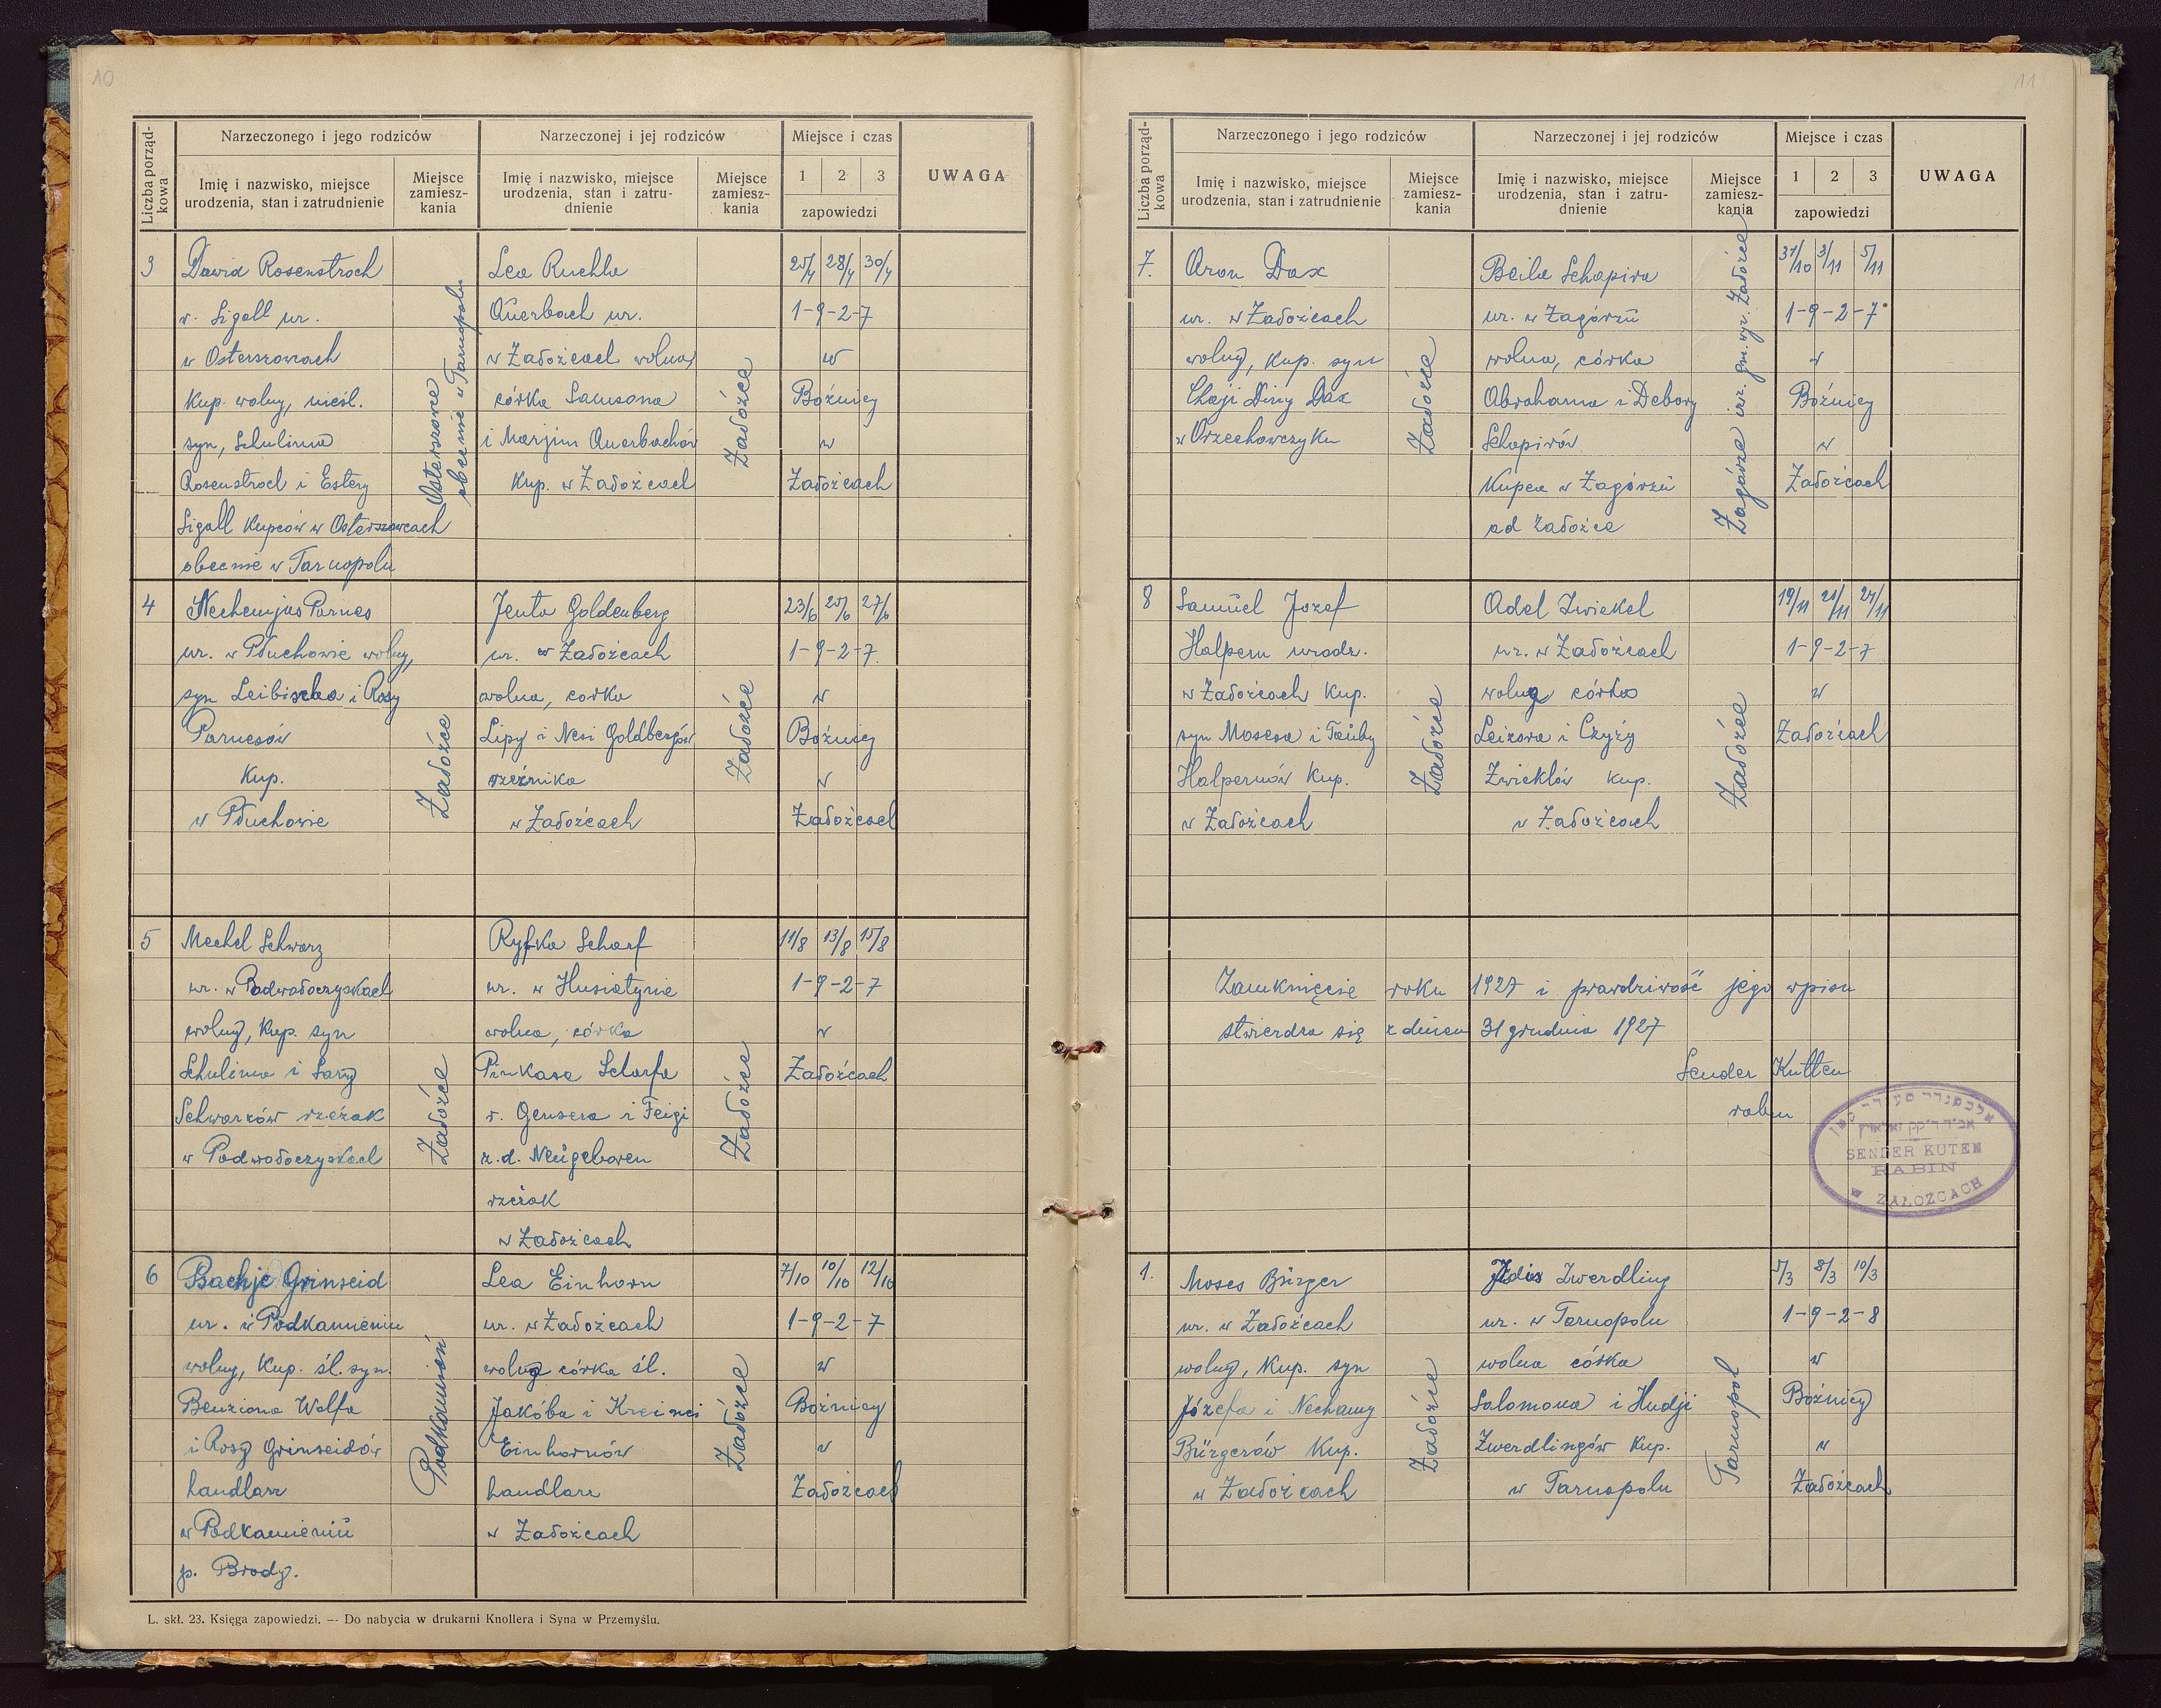 10
Liczba porządkowa
Narzeczonego i jego rodziców
Narzeczonej i jej rodziców
Miejsce i czas
UWAGA
Imię i nazwisko, miejsce urodzenia, stan i zatrudnienie
Miejsce zamieszkania
Imię i nazwisko, miejsce urodzenia, stan i zatrudnienie
Miejsce zamieszkania
1 2 3
zapowiedzi
3
Dawid Rosenstroch
v. Sigall ur.
w Osterszowcach
Kup. wolny, nieśl.
syn, Schulima
Rosenstroch i Estery
Sigall Kupców w Osterszowcach
obecnie w Tarnopolu
Osterszowce
obecnie w Tarnopolu
Lea Ruchla
Auerbach ur.
w Założcach wolna,
córka Samsona
i Marjim Auerbachów
Kup. w Założcach
Założce
25/4 28/4 30/4
1-9-2-7
w
Bożnicy
w
Założcach
4
Nechemjas Parnes
ur. w Płuchowie wolny,
syn Leibischa i Rosy
Parnesów
Kup.
w Płuchowie
Założce
Jenta Goldenberg
ur. w Założcach
wolna, corka
Lipy i Nesi Goldbergów
rzeźnika
w Założcach
Założce
23/6 25/6 27/6
1-9-2-7.
w
Bożnicy
w
Założcach
5
Mechel Schwarz
ur. w Podwołoczyskach
wolny, Kup. syn
Schulima i Sary
Schwarzów rzeżak
w Podwołoczyskach
Założce
Ryfka Scharf
ur. w Husiatynie
wolna, córka
Pinkasa Scharfa
v. Gensera i Feigi
z.d. Neugeboren
rzeżak
w Założcach
Założce
11/8 13/8 15/8
1-9-2-7
w
Założcach
6
Bachje Grinseid
ur. w Podkamieniu
wolny, Kup. śl. syn.
Benziona Wolfa
i Rosy Grinseidów
handlarz
w Podkamieniu
p. Brody.
Podkamień
Lea Einhorn
ur. w Założcach
wolna córka śl.
Jakóba i Kreinci
Einhornów
handlarz
w Założcach
Założce
7/10 10/10 12/10
1-9-2-7
w
Bożnicy
w
Założcach
L. skł. 23. Księga zapowiedzi. — Do nabycia w drukarni Knollera i Syna w Przemyślu.
11
Liczba porządkowa
Narzeczonego i jego rodziców
Narzeczonej i jej rodziców
Miejsce i czas
UWAGA
Imię i nazwisko, miejsce urodzenia, stan i zatrudnienie
Miejsce zamieszkania
Imię i nazwisko, miejsce urodzenia, stan i zatrudnienie
Miejsce zamieszkania
1 2 3
zapowiedzi
7.
Aron Dax
ur. w Założcach
wolny, Kup. syn
Chaji Diny Dax
w Orzechowczyku
Założce
Beila Schapira
ur. w Zagórzu
wolna, córka
Abrahama i Debory
Schapirów
Kupca w Zagórzu
ad Założce
Zagórze izr. gm. wyz. Założce
31/10 3/11 5/11
1-9-2-7
w
Bożnicy
w
Założcach
8
Samuel Jozef
Halpern urodz.
w Założcach Kup.
syn Mosesa i Tauby
Halpernów Kup.
w Założcach
Założce
Adel Zwiekel
ur. w Założcach
wolna córka
Leizora i Czyży
Zwieklów kup.
w Założcach
Założce
19/11 21/11 24/11
1-9-2-7
w
Założcach
Zamknięcie roku 1927 i prawdziwość jego wpisu
stwierdza się z dniem 31 grudnia 1927
Sender Kutten
rabin
SENDER KUTEN
RABIN
W ZAŁOŹCACH
1.
Moses Bürger
ur. w Założcach
wolny, Kup. syn
Józefa i Nechamy
Bürgerów Kup.
w Założcach
Założce
Jides Zwerdling
ur. w Tarnopolu
wolna córka
Salomona i Hudji
Zwerdlingów Kup.
w Tarnopolu
Tarnopol
5/3 8/3 10/3
1-9-2-8
w
Bożnicy
w
Założcach